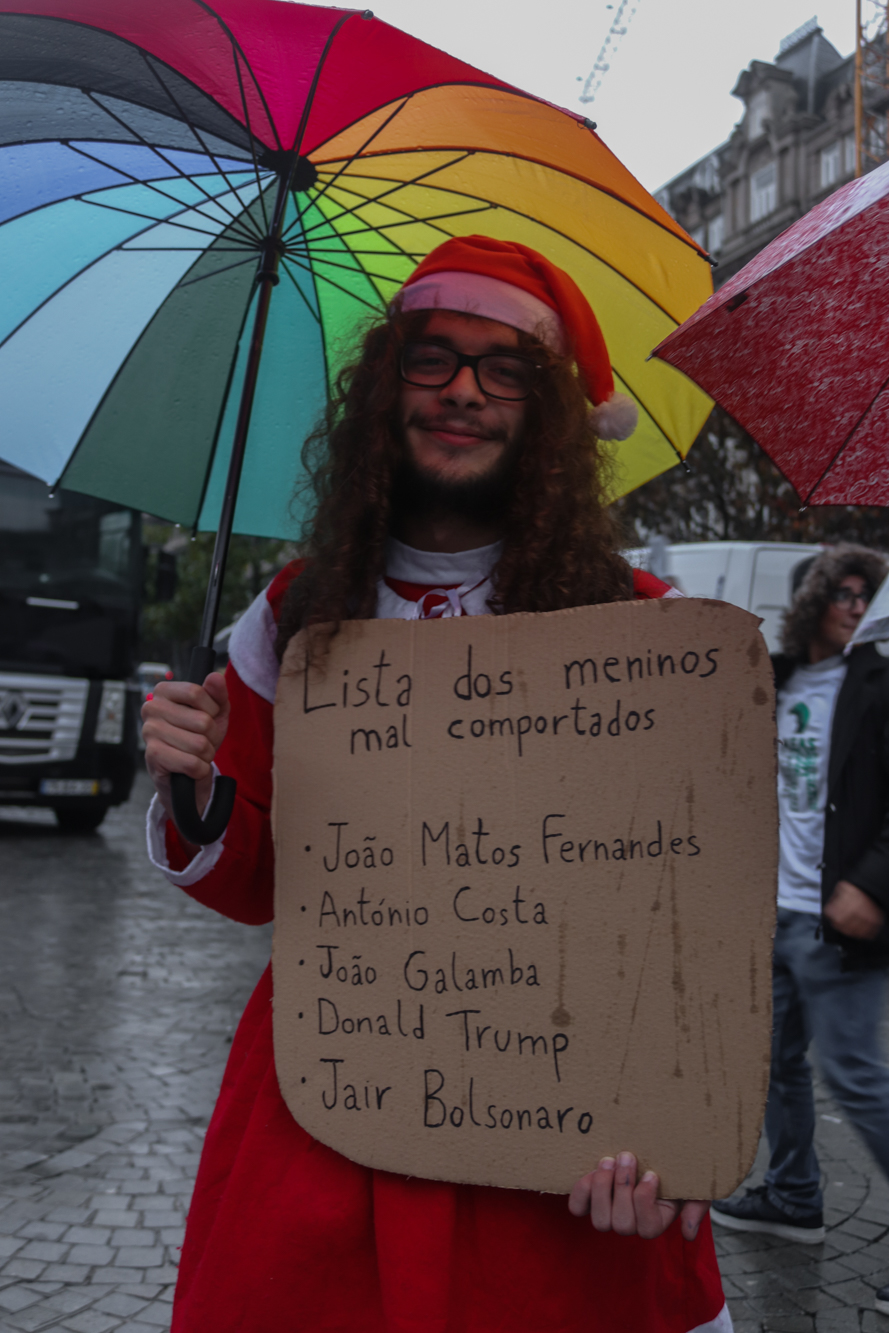 Lista dos meninos
mal comportados
• João Matos Fernandes
• António Costa
• João Galamba
• Donald Trump
• Jair Bolsonaro